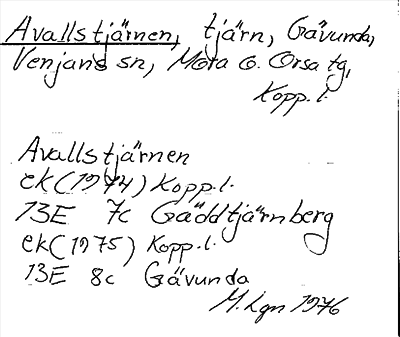 Avallstjärnen, tjärn, Gävunda,
Venjans sn, Mora o. Orsa tg,
Kopp.l.
Avallstjärnen
ek(1974) Kopp.l.
13E 7c Gäddtjärnberg
ek(1975) Kopp.l.
13E 8c Gävunda
M.Lgn 1976